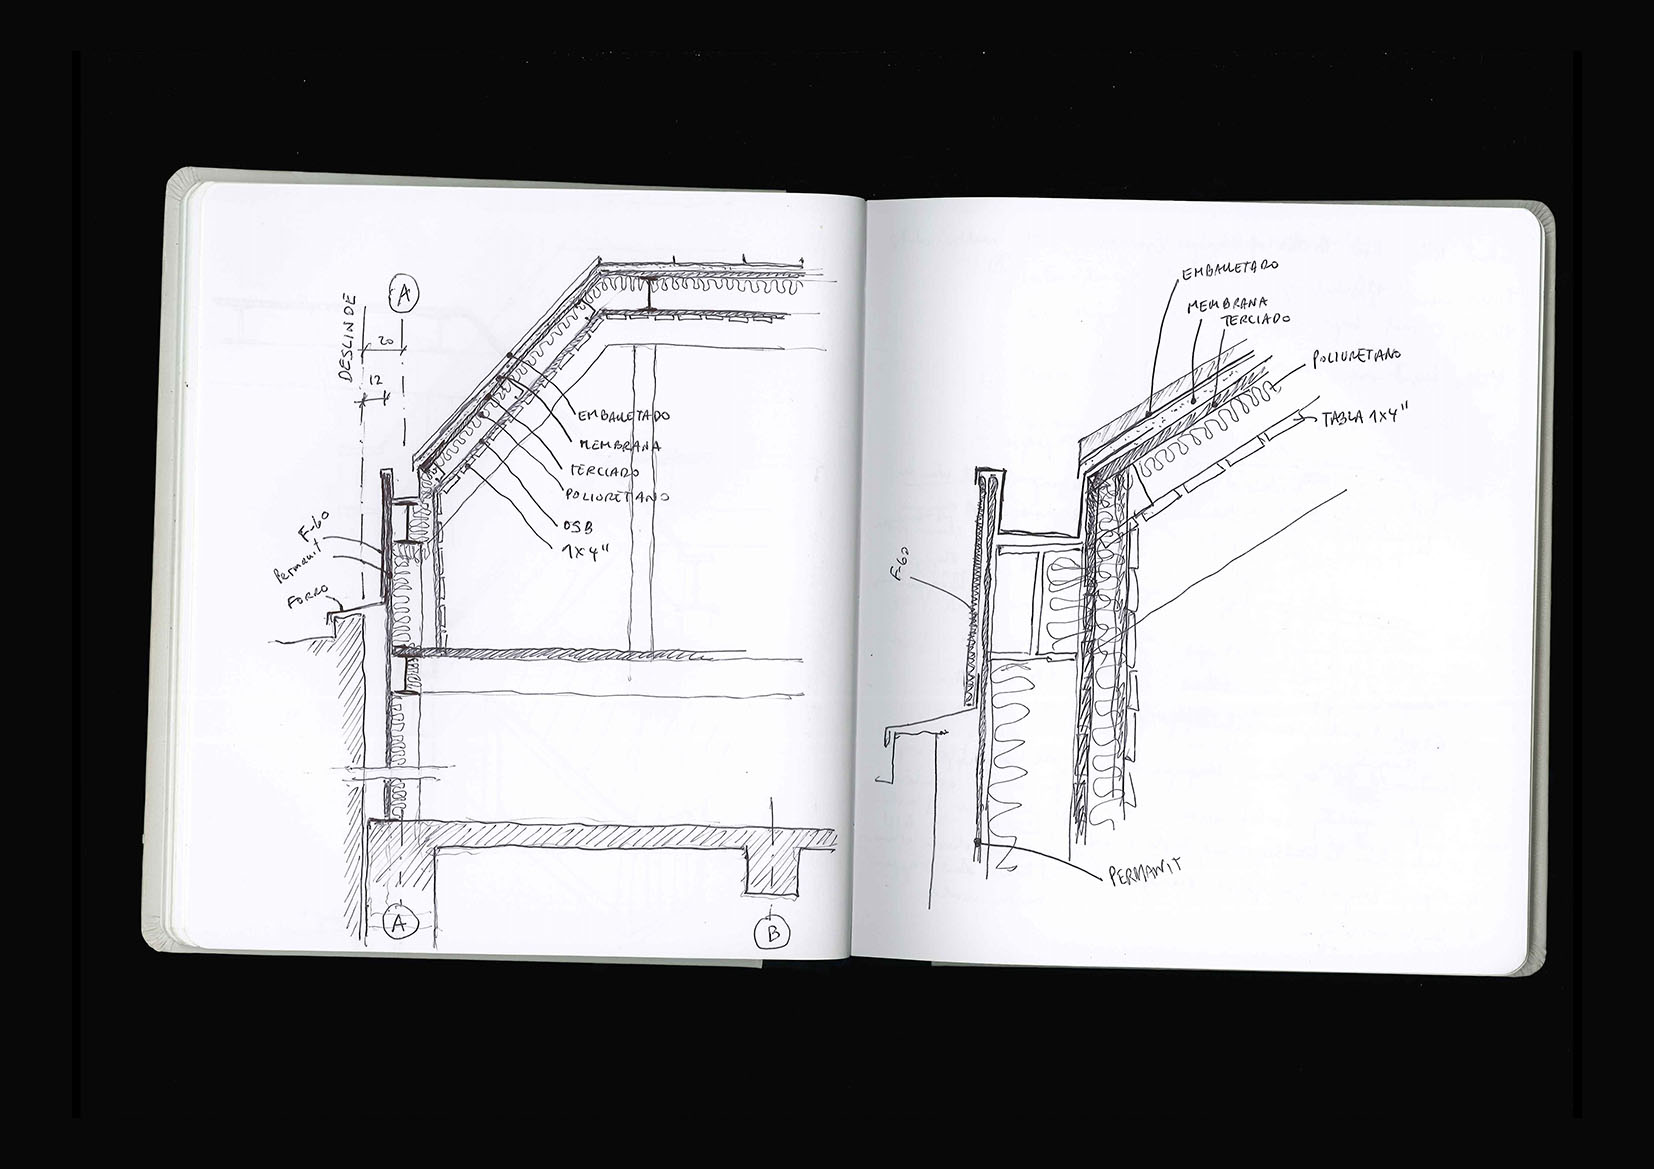 DESLINDE
A
20
12
EMBALLETADO
MEMBRANA
TERCIADO
POLIURETANO
OSB
1x4"
F-60
Permanit
FORRO
A
B
EMBALLETADO
MEMBRANA
TERCIADO
POLIURETANO
TABLA 1x4"
F-60
PERMANIT